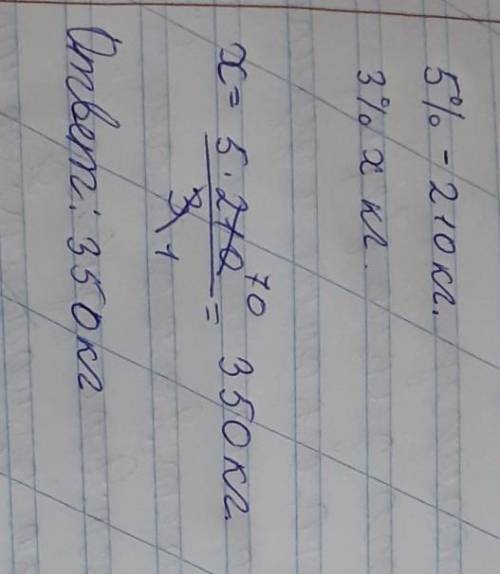 5% - 210 кг.
3% х кг.
х = 5 · 210 70 / 3 1 = 350 кг.
Ответ: 350 кг